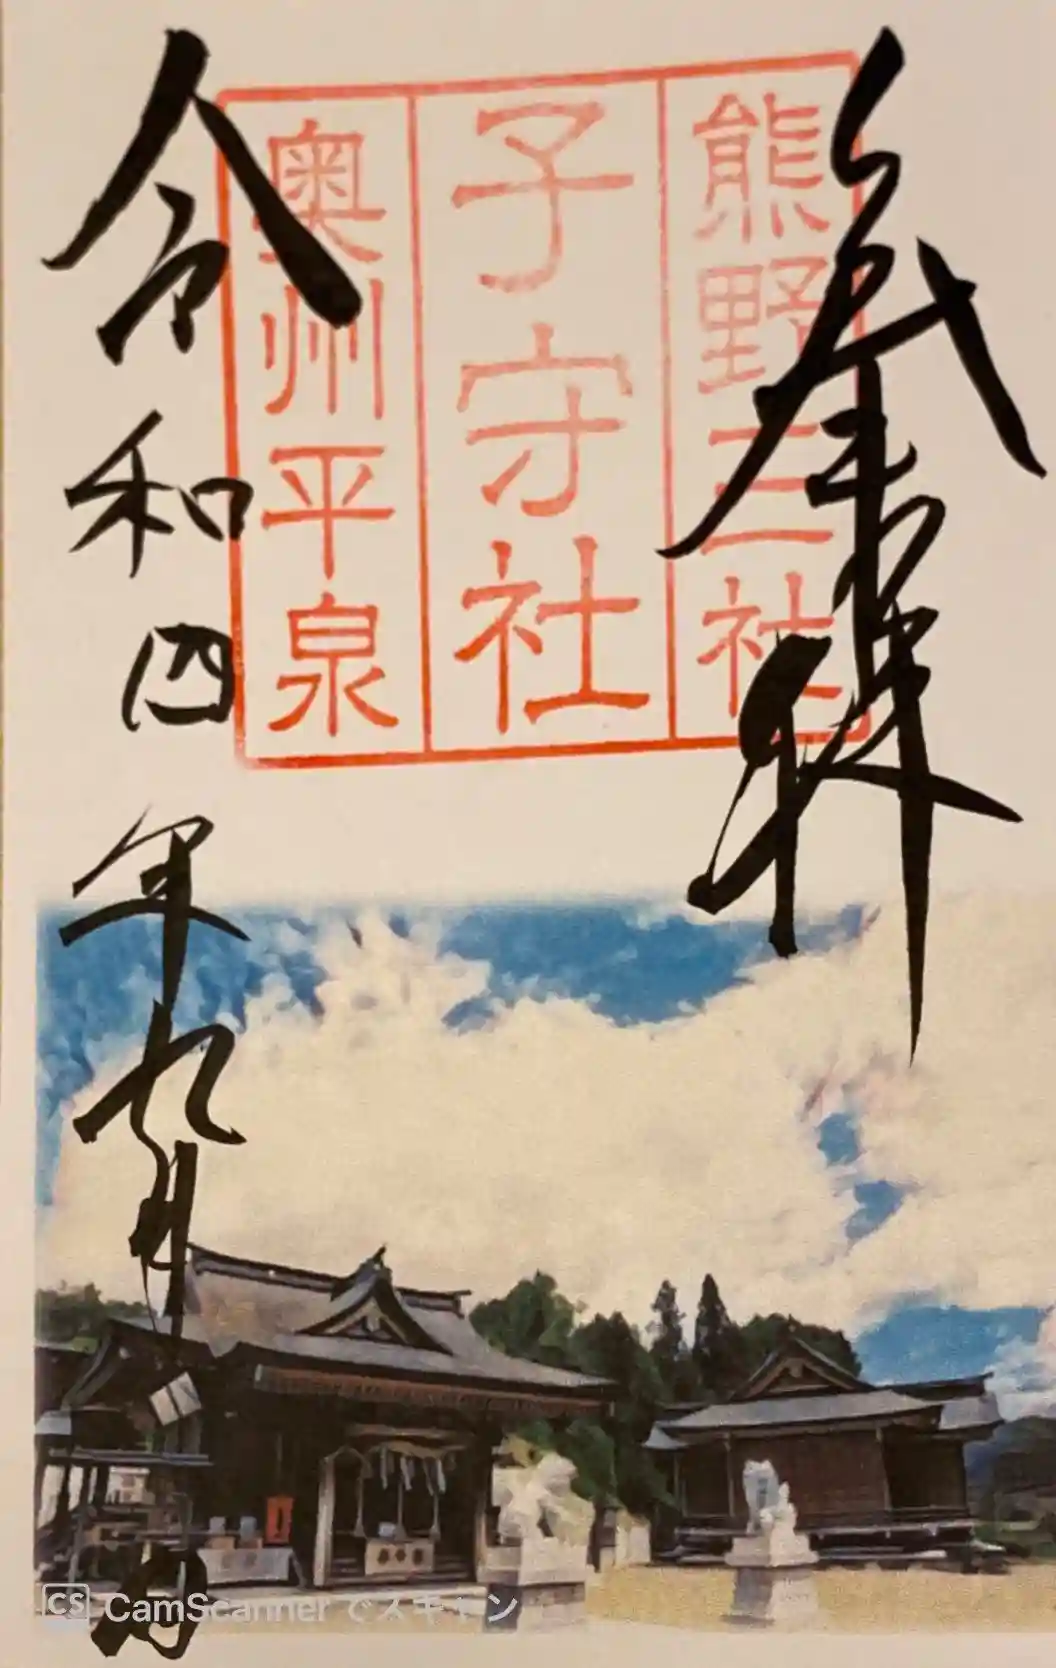 奉拝
熊野三社
子守社
奥州平泉
令和四年九月 日
CS CamScannerでスキャン